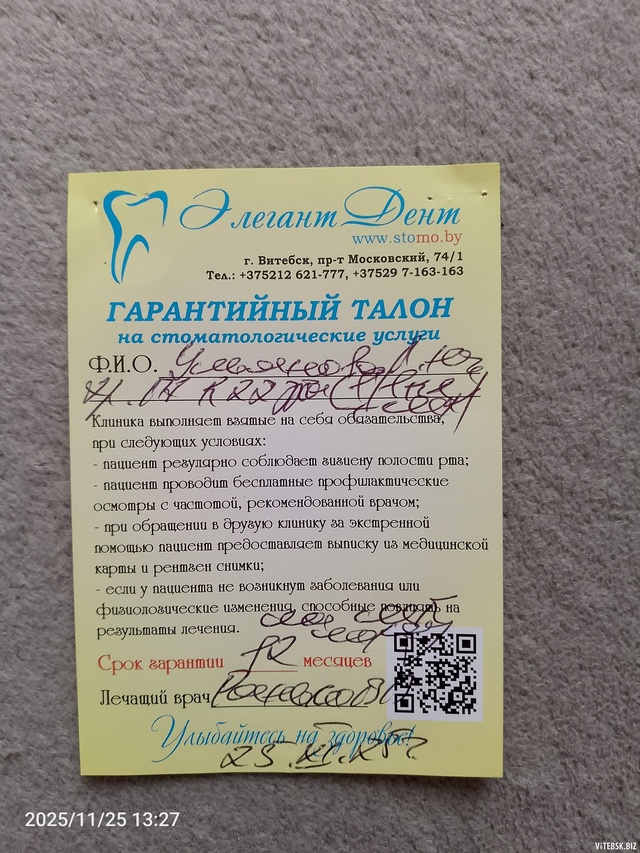 Элегант Дент
www.stomo.by
г. Витебск, пр-т Московский, 74/1
Тел.: +375212 621-777, +37529 7-163-163
ГАРАНТИЙНЫЙ ТАЛОН
на стоматологические услуги
Ф.И.О.
Клиника выполняет взятые на себя обязательства,
при следующих условиях:
- пациент регулярно соблюдает гигиену полости рта;
- пациент проводит бесплатные профилактические
осмотры с частотой, рекомендованной врачом;
- при обращении в другую клинику за экстренной
помощью пациент предоставляет выписку из медицинской
карты и рентген снимки;
- если у пациента не возникнут заболевания или
физиологические изменения, способные повлиять на
результаты лечения.
Срок гарантии 12 месяцев
Лечащий врач
Улыбайтесь на здоровье!
25.XI.25г.
2025/11/25 13:27
VITEBSK.BIZ